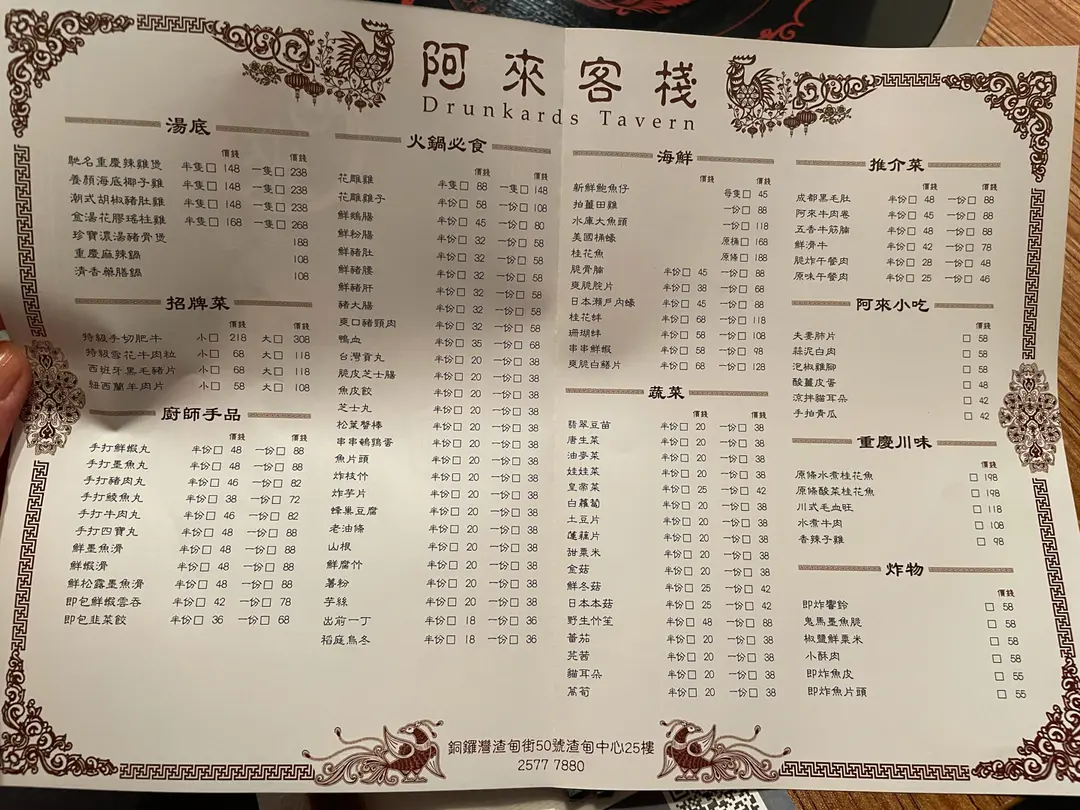 阿來客棧
Drunkards Tavern
湯底
價錢 價錢
馳名重慶辣雞煲 半隻□ 148 一隻□ 238
養顏海底椰子雞 半隻□ 148 一隻□ 238
潮式胡椒豬肚雞 半隻□ 148 一隻□ 238
金湯花膠瑤柱雞 半隻□ 168 一隻□ 268
珍寶濃湯豬骨煲 188
重慶麻辣鍋 108
清香藥膳鍋 108
招牌菜
價錢 價錢
特級手切肥牛 小□ 218 大□ 308
特級雪花牛肉粒 小□ 68 大□ 118
西班牙黑毛豬片 小□ 68 大□ 118
紐西蘭羊肉片 小□ 58 大□ 108
廚師手品
價錢 價錢
手打鮮蝦丸 半份□ 48 一份□ 88
手打墨魚丸 半份□ 48 一份□ 88
手打豬肉丸 半份□ 46 一份□ 82
手打鯪魚丸 半份□ 38 一份□ 72
手打牛肉丸 半份□ 46 一份□ 82
手打四寶丸 半份□ 48 一份□ 88
鮮墨魚滑 半份□ 48 一份□ 88
鮮蝦滑 半份□ 48 一份□ 88
鮮松露墨魚滑 半份□ 48 一份□ 88
即包鮮蝦雲吞 半份□ 42 一份□ 78
即包韭菜餃 半份□ 36 一份□ 68
火鍋必食
價錢 價錢
花雕雞 半隻□ 88 一隻□ 148
花雕雞子 半份□ 58 一份□ 108
鮮鵝腸 半份□ 45 一份□ 80
鮮粉腸 半份□ 32 一份□ 58
鮮豬膶 半份□ 32 一份□ 58
鮮豬腰 半份□ 32 一份□ 58
鮮豬肝 半份□ 32 一份□ 58
豬大腸 半份□ 32 一份□ 58
爽口豬頸肉 半份□ 32 一份□ 58
鴨血 半份□ 35 一份□ 68
台灣貢丸 半份□ 20 一份□ 38
脆皮芝士腸 半份□ 20 一份□ 38
魚皮餃 半份□ 20 一份□ 38
芝士丸 半份□ 20 一份□ 38
松葉蟹棒 半份□ 20 一份□ 38
串串鵪鶉蛋 半份□ 20 一份□ 38
魚片頭 半份□ 20 一份□ 38
炸枝竹 半份□ 20 一份□ 38
炸芋片 半份□ 20 一份□ 38
蜂巢豆腐 半份□ 20 一份□ 38
老油條 半份□ 20 一份□ 38
山根 半份□ 20 一份□ 38
鮮腐竹 半份□ 20 一份□ 38
薯粉 半份□ 20 一份□ 38
芋絲 半份□ 20 一份□ 38
出前一丁 半份□ 18 一份□ 36
稻庭烏冬 半份□ 18 一份□ 36
海鮮
價錢 價錢
新鮮鮑魚仔 每隻□ 45
拍薑田雞 一份□ 88
水庫大魚頭 一份□ 118
美國桶蠔 原桶□ 168
桂花魚 原條□ 188
脆骨腩 半份□ 45 一份□ 88
爽脆脘片 半份□ 38 一份□ 68
日本瀨戶內蠔 半份□ 45 一份□ 88
桂花蚌 半份□ 68 一份□ 118
珊瑚蚌 半份□ 58 一份□ 108
串串鮮蝦 半份□ 58 一份□ 98
爽脆白鱔片 半份□ 68 一份□ 128
蔬菜
價錢 價錢
翡翠豆苗 半份□ 20 一份□ 38
唐生菜 半份□ 20 一份□ 38
油麥菜 半份□ 20 一份□ 38
娃娃菜 半份□ 20 一份□ 38
皇帝菜 半份□ 25 一份□ 42
白蘿蔔 半份□ 20 一份□ 38
土豆片 半份□ 20 一份□ 38
蓮藕片 半份□ 20 一份□ 38
甜粟米 半份□ 20 一份□ 38
金菇 半份□ 20 一份□ 38
鮮冬菇 半份□ 25 一份□ 42
日本本菇 半份□ 25 一份□ 42
野生竹笙 半份□ 48 一份□ 88
蕃茄 半份□ 20 一份□ 38
芫茜 半份□ 20 一份□ 38
貓耳朵 半份□ 20 一份□ 38
萵筍 半份□ 20 一份□ 38
推介菜
價錢 價錢
成都黑毛肚 半份□ 48 一份□ 88
阿來牛肉卷 半份□ 45 一份□ 88
五香牛筋腩 半份□ 48 一份□ 88
鮮滑牛 半份□ 42 一份□ 78
脆炸午餐肉 半份□ 28 一份□ 48
原味午餐肉 半份□ 25 一份□ 46
阿來小吃
價錢
夫妻肺片 □ 58
蒜泥白肉 □ 58
泡椒雞腳 □ 58
酸薑皮蛋 □ 48
涼拌貓耳朵 □ 42
手拍青瓜 □ 42
重慶川味
價錢
原條水煮桂花魚 □ 198
原條酸菜桂花魚 □ 198
川式毛血旺 □ 118
水煮牛肉 □ 108
香辣子雞 □ 98
炸物
價錢
即炸響鈴 □ 58
鬼馬墨魚脆 □ 58
椒鹽鮮粟米 □ 58
小酥肉 □ 58
即炸魚皮 □ 55
即炸魚片頭 □ 55
銅鑼灣渣甸街50號渣甸中心25樓
2577 7880